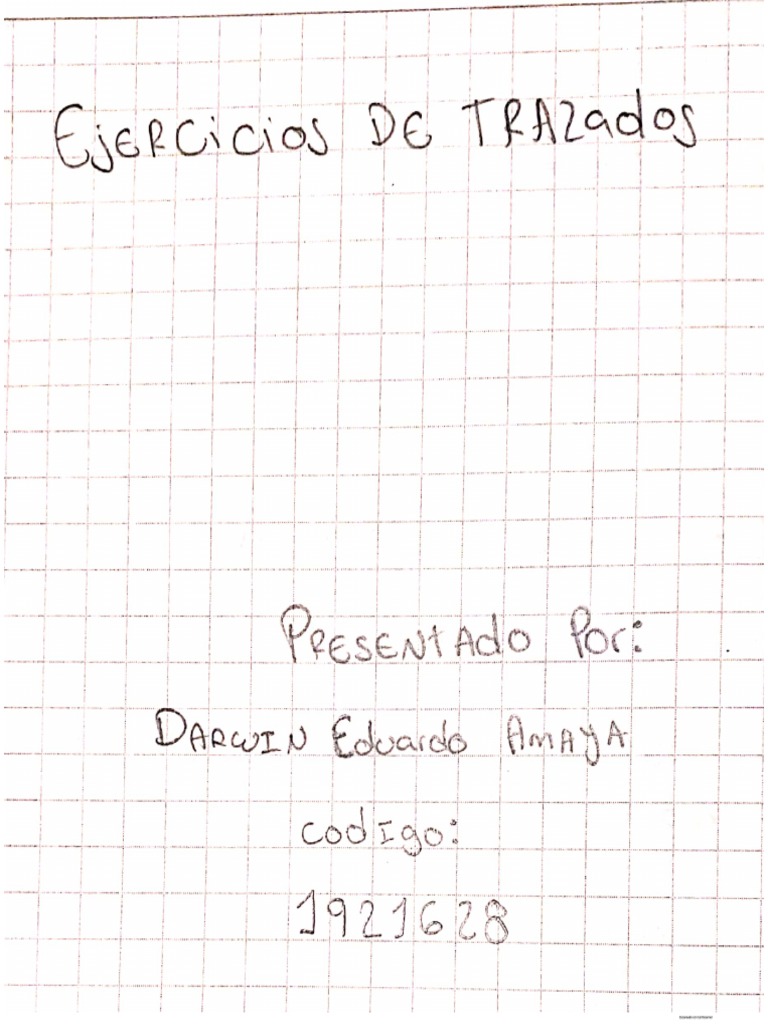 EjERCiCiOS DE TRAZados
PRESENtAdo Por:
DARWIN Eduardo AmAyA
codIgo:
1921628